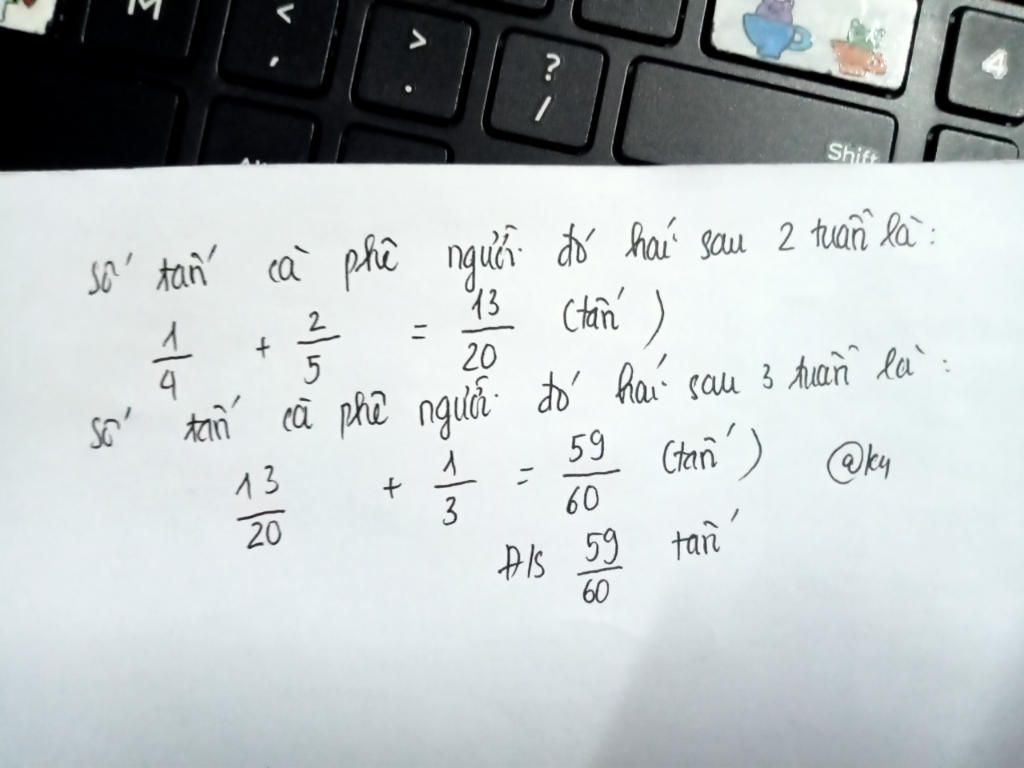 M
<
,
>
.
?
/
4
Shift
số tấn cà phê người đó hái sau 2 tuần là:
1/4 + 2/5 = 13/20 (tấn)
số tấn cà phê người đó hái sau 3 tuần là:
13/20 + 1/3 = 59/60 (tấn) @ky
Đ/s 59/60 tấn